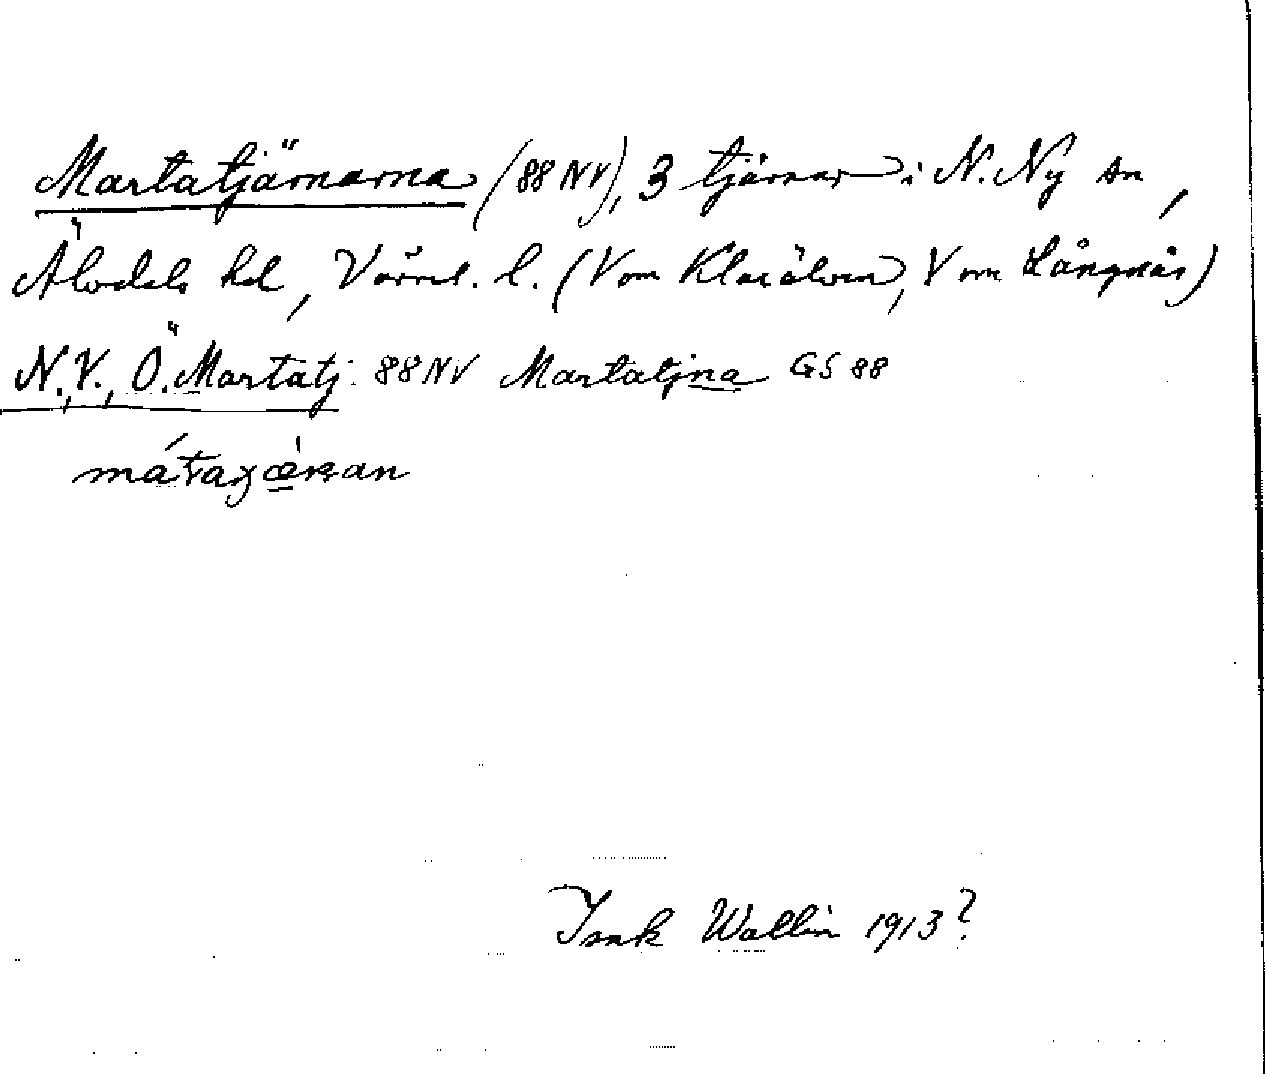 Martatjärnarna (88 NV), 3 tjärnar i N. Ny sn,
Älvdals hd, Värml. l. (V om Klarälven, V om Långnäs)
N., V., Ö. Martatj. 88 NV Martatjna GS 88
Isak Wallin 1913?